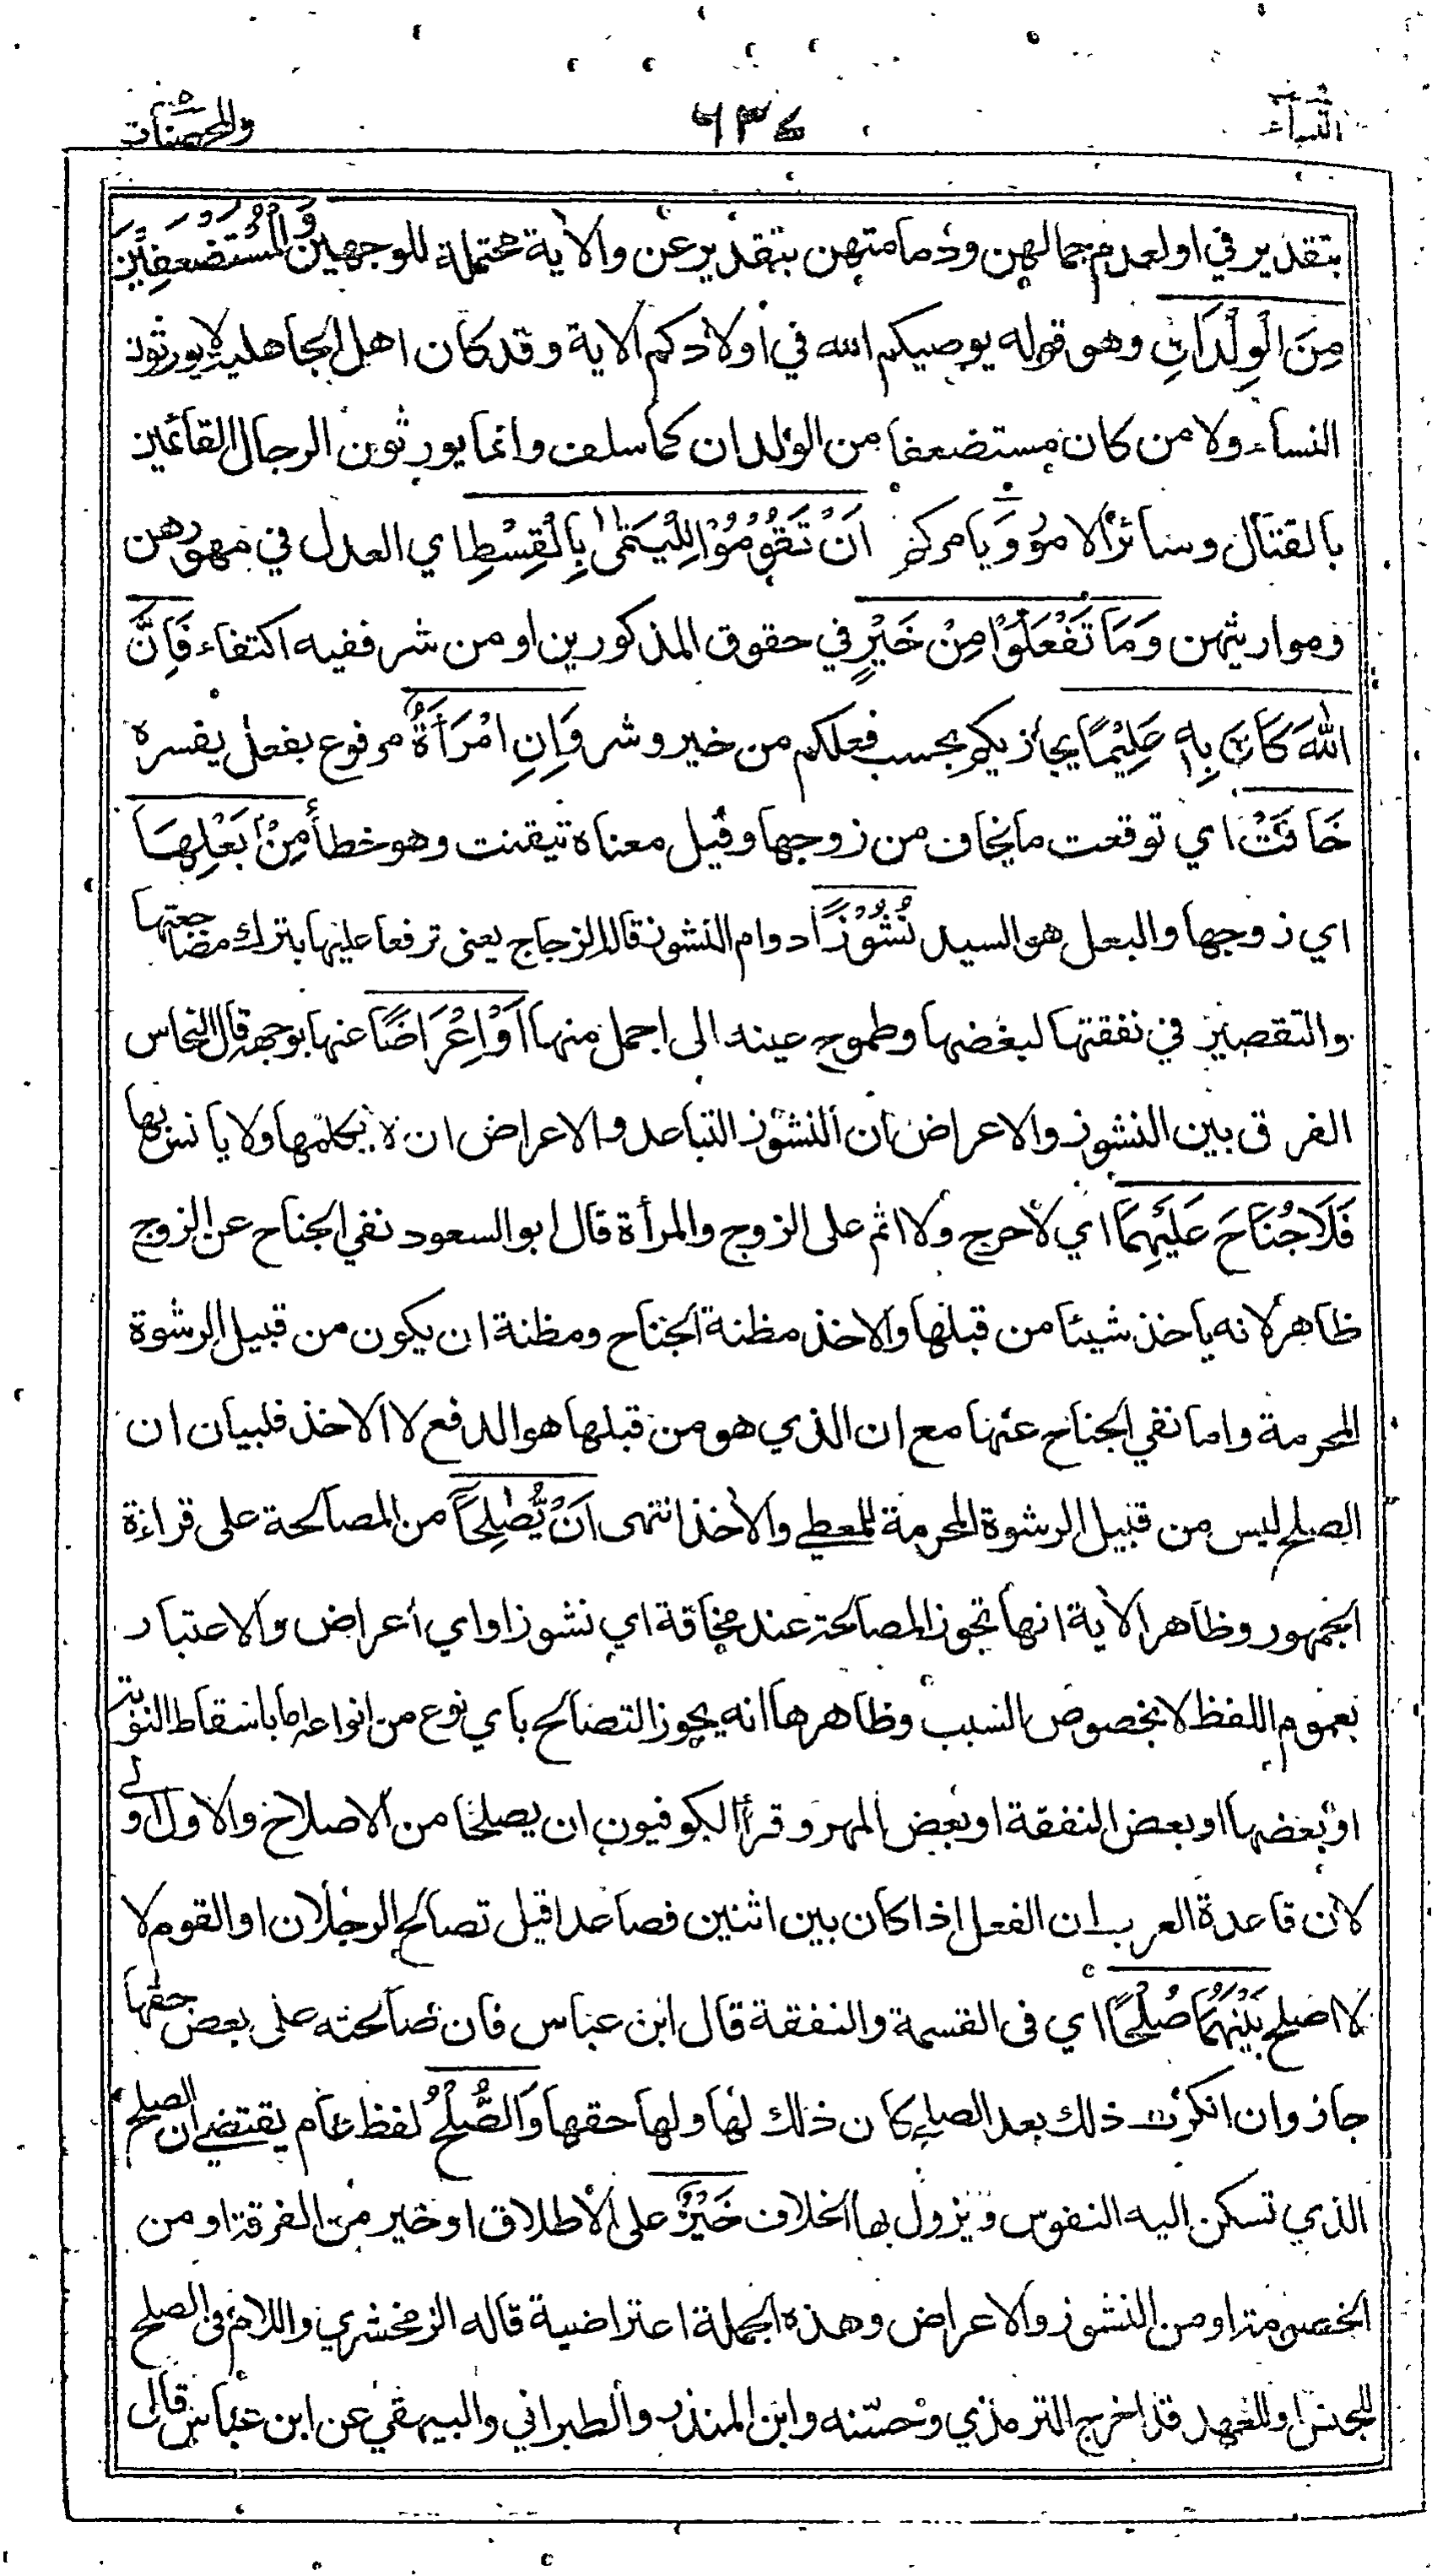 النساء
٦٣٤
والمحصنات
بتقدير في او لعدم جمالهن ودمامتهن بتقدير عن والاية محتملة للوجهين وَالْمُسْتَضْعَفِيْنَ
مِنَ الْوِلْدَانِ وهو قوله يوصيكم الله في اولادكم الاية وقد كان اهل الجاهلية لا يورثون
النساء ولا من كان مستضعفا من الولدان كما سلف وانما يورثون الرجال القائمين
بالقتال وسائر الامور وَ يامركم اَنْ تَقُوْمُوْا لِلْيَتٰمٰى بِالْقِسْطِ اي العدل في مهورهن
ومواريثهن وَمَا تَفْعَلُوْا مِنْ خَيْرٍ في حقوق المذكورين او من شر ففيه اكتفاء فَاِنَّ
اللّٰهَ كَانَ بِهٖ عَلِيْمًا يجازيكم بحسب فعلكم من خير وشر وَاِنِ امْرَأَةٌ مرفوع بفعل يفسره
خَافَتْ اي توقعت ما يخاف من زوجها وقيل معناه تيقنت وهو خطأ مِنْ بَعْلِهَا
اي زوجها والبعل هو السيد نُشُوْزًا دوام النشوز قال الزجاج يعني ترفعا عليها بترك مضاجعتها
والتقصير في نفقتها لبغضها وطموح عينه الى اجمل منها اَوْ اِعْرَاضًا عنها بوجهه قال النحاس
الفرق بين النشوز والاعراض ان النشوز التباعد والاعراض ان لا يكلمها ولا يانس بها
فَلَا جُنَاحَ عَلَيْهِمَا اي لا حرج ولا اثم على الزوج والمرأة قال ابو السعود نفي الجناح عن الزوج
ظاهر لانه ياخذ شيئا من قبلها والاخذ مظنة الجناح ومظنة ان يكون من قبيل الرشوة
المحرمة واما نفي الجناح عنها مع ان الذي هو من قبلها هو الدفع لا الاخذ فلبيان ان
الصلح ليس من قبيل الرشوة المحرمة للمعطي والاخذ انتهى اَنْ يُّصْلِحَا من المصالحة على قراءة
الجمهور وظاهر الاية انها تجوز المصالحة عند مخافة اي نشوز او اي اعراض والاعتبار
بعموم اللفظ لا بخصوص السبب وظاهرها انه يجوز التصالح باي نوع من انواعه اما باسقاط النوبة
او بعضها او بعض النفقة او بعض المهر وقرأ الكوفيون ان يصلحا من الاصلاح والاول اولى
لان قاعدة العرب ان الفعل اذا كان بين اثنين فصاعدا قيل تصالح الرجلان او القوم لا
لا اصلح بَيْنَهُمَا صُلْحًا اي في القسمة والنفقة قال ابن عباس فان صالحته على بعض حقها
جاز وان انكرت ذلك بعد الصلح كان ذلك لها ولها حقها وَالصُّلْحُ لفظ عام يقتضي ان الصلح
الذي تسكن اليه النفوس ويزول بها الخلاف خَيْرٌ على الاطلاق او خير من الفرقة او من
الخصومة او من النشوز والاعراض وهذه الجملة اعتراضية قاله الزمخشري واللام في الصلح
للجنس او للعهد قد اخرج الترمذي وحسنه وابن المنذر والطبراني والبيهقي عن ابن عباس قال